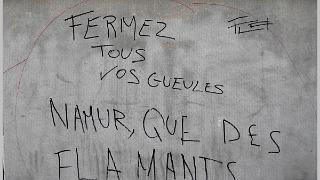 FERMEZ
TOUS
VOS GUEULES
NAMUR, QUE DES
FLAMANTS